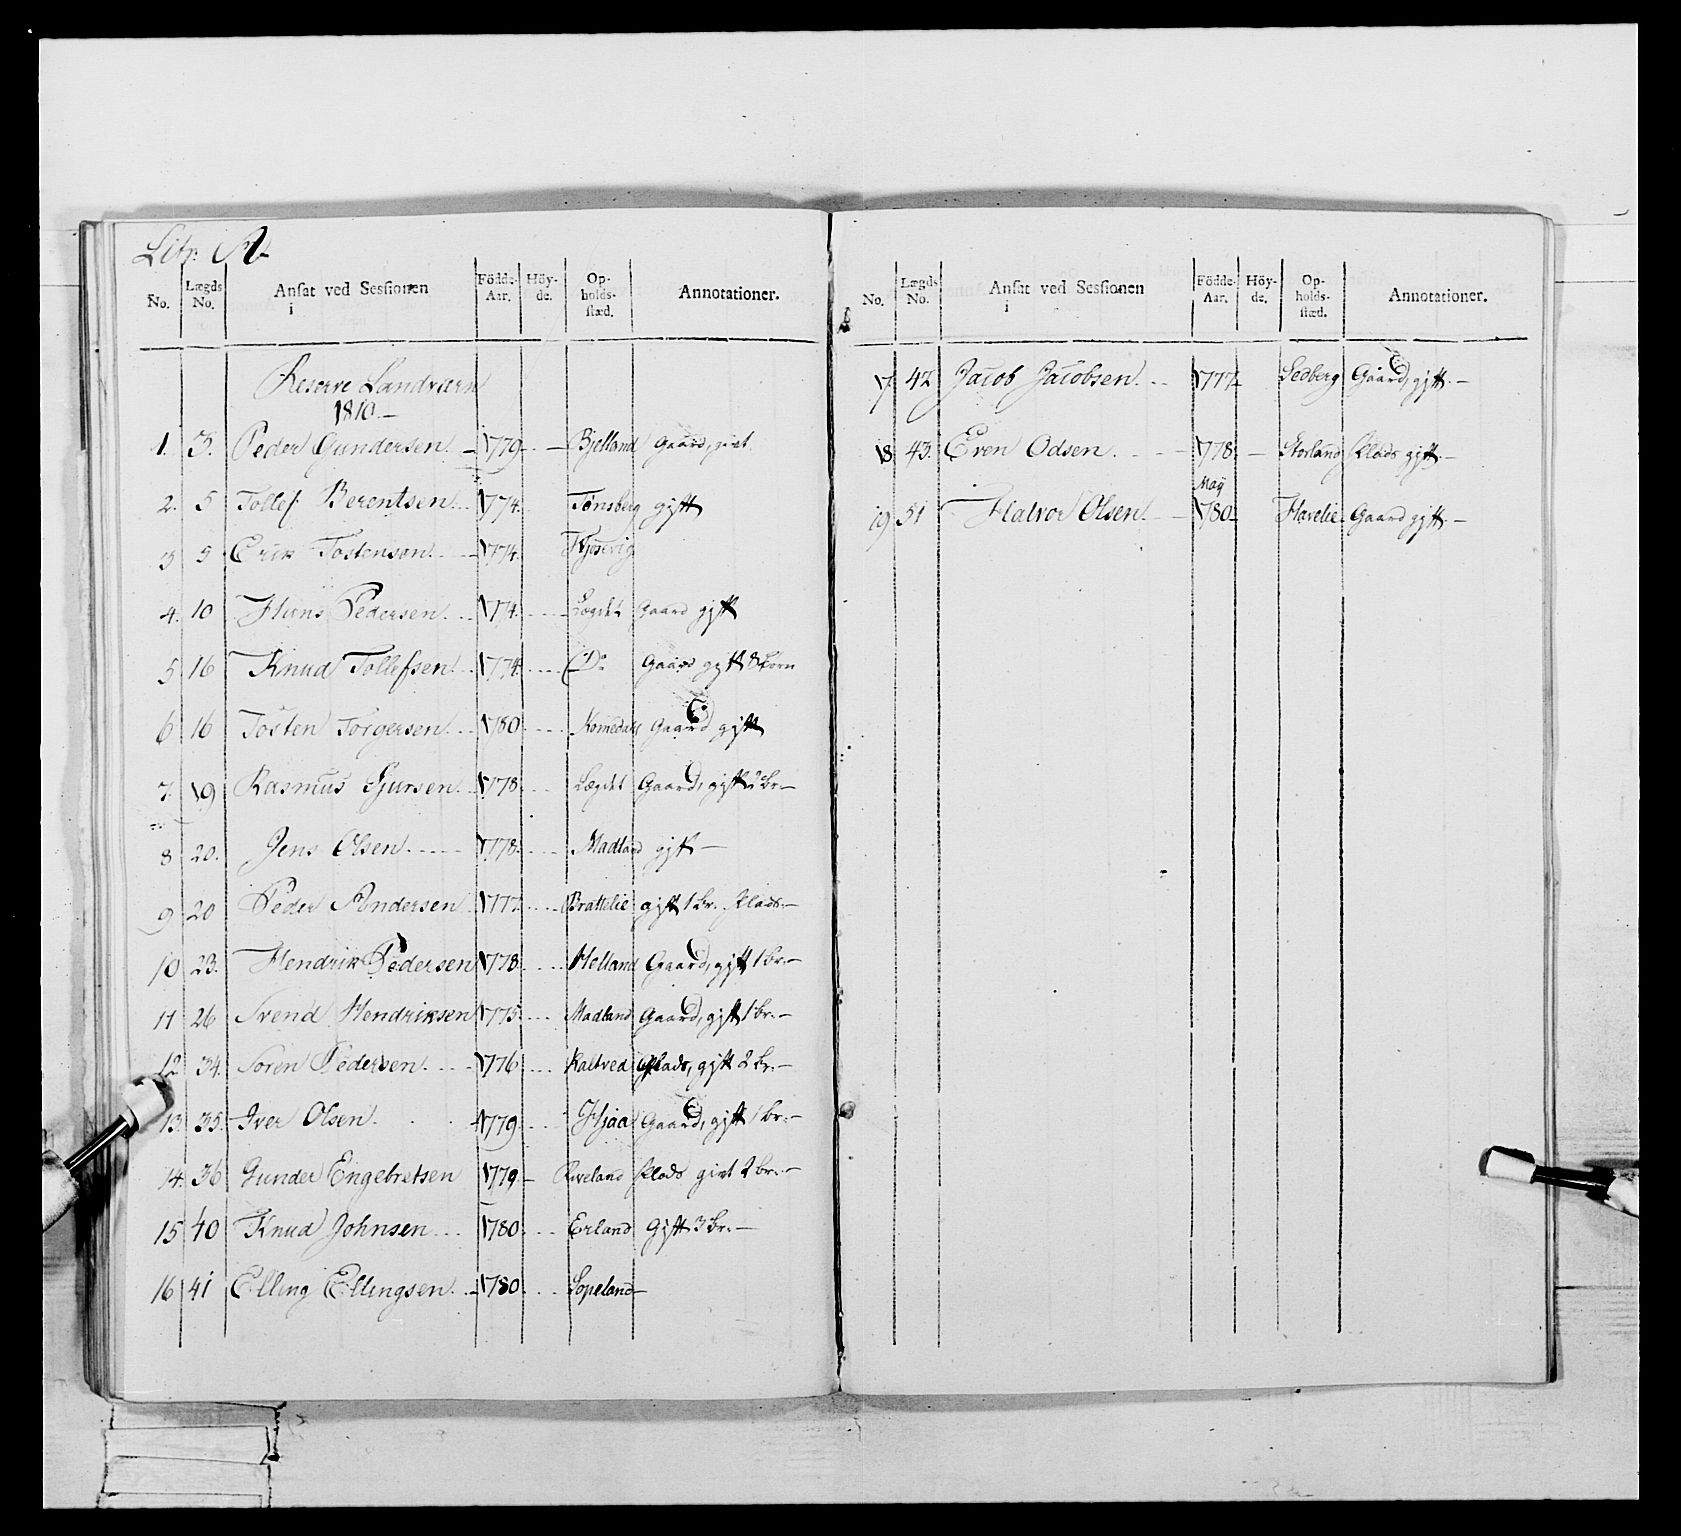 Litr. A.
No. Lægds No. Ansat ved Sessionen i Födde-Aar. Höy-de. Op-holds-stæd. Annotationer.
Reserve Landværn
1810.—
1. 3. Peder Gundersen 1779 Bjelland Gaard, givt
2. 5 Tollef Berentsen 1774. Tonsberg gift
3 5 Erik Tostensen 1774. Kjosevig
4. 10 Hans Pedersen 1774. Lægdet Gaard gift
5 16 Knud Tollefsen 1774 Do Gaard gift 8 børn
6 16 Tosten Torgersen 1780 Homedahl Gaard gift
7. 19 Rasmus Sjursen 1778. Lægdet Gaard, gift 2 br.—
8 20. Jens Olsen 1778. Madland gift —
9 20 Peder Andersen 1777. Brattelie gift 1 br. Plads.—
10 23. Hendrik Pedersen 1778. Helland Gaard, gift 1 br.—
11 26 Svend Hendriksen 1775. Madland Gaard, gift 1 br.—
12 34. Soren Pedersen. 1776 Kaltved Plads, gift 2 br.—
13. 35. Iver Olsen. 1779. Hjaa Gaard, gift 1 br.—
14. 36 Gunder Engebretsen 1779 Riveland Plads givt 2 br.—
15 40 Knud Johnsen 1780. Erland Gift 3 br.—
16 41 Elling Ellingsen 1780. Sopeland—
No. Lægds No. Ansat ved Sessionen i Födde-Aar. Höy-de. Op-holds-stæd. Annotationer.
17. 42 Jacob Jacobsen 1777. Sedberg Gaard, gift.—
18 43. Even Odsen. 1778. Storland Plads gift.—
May
19 51 Halvor Olsen. 1780. Havelie Gaard gift.—